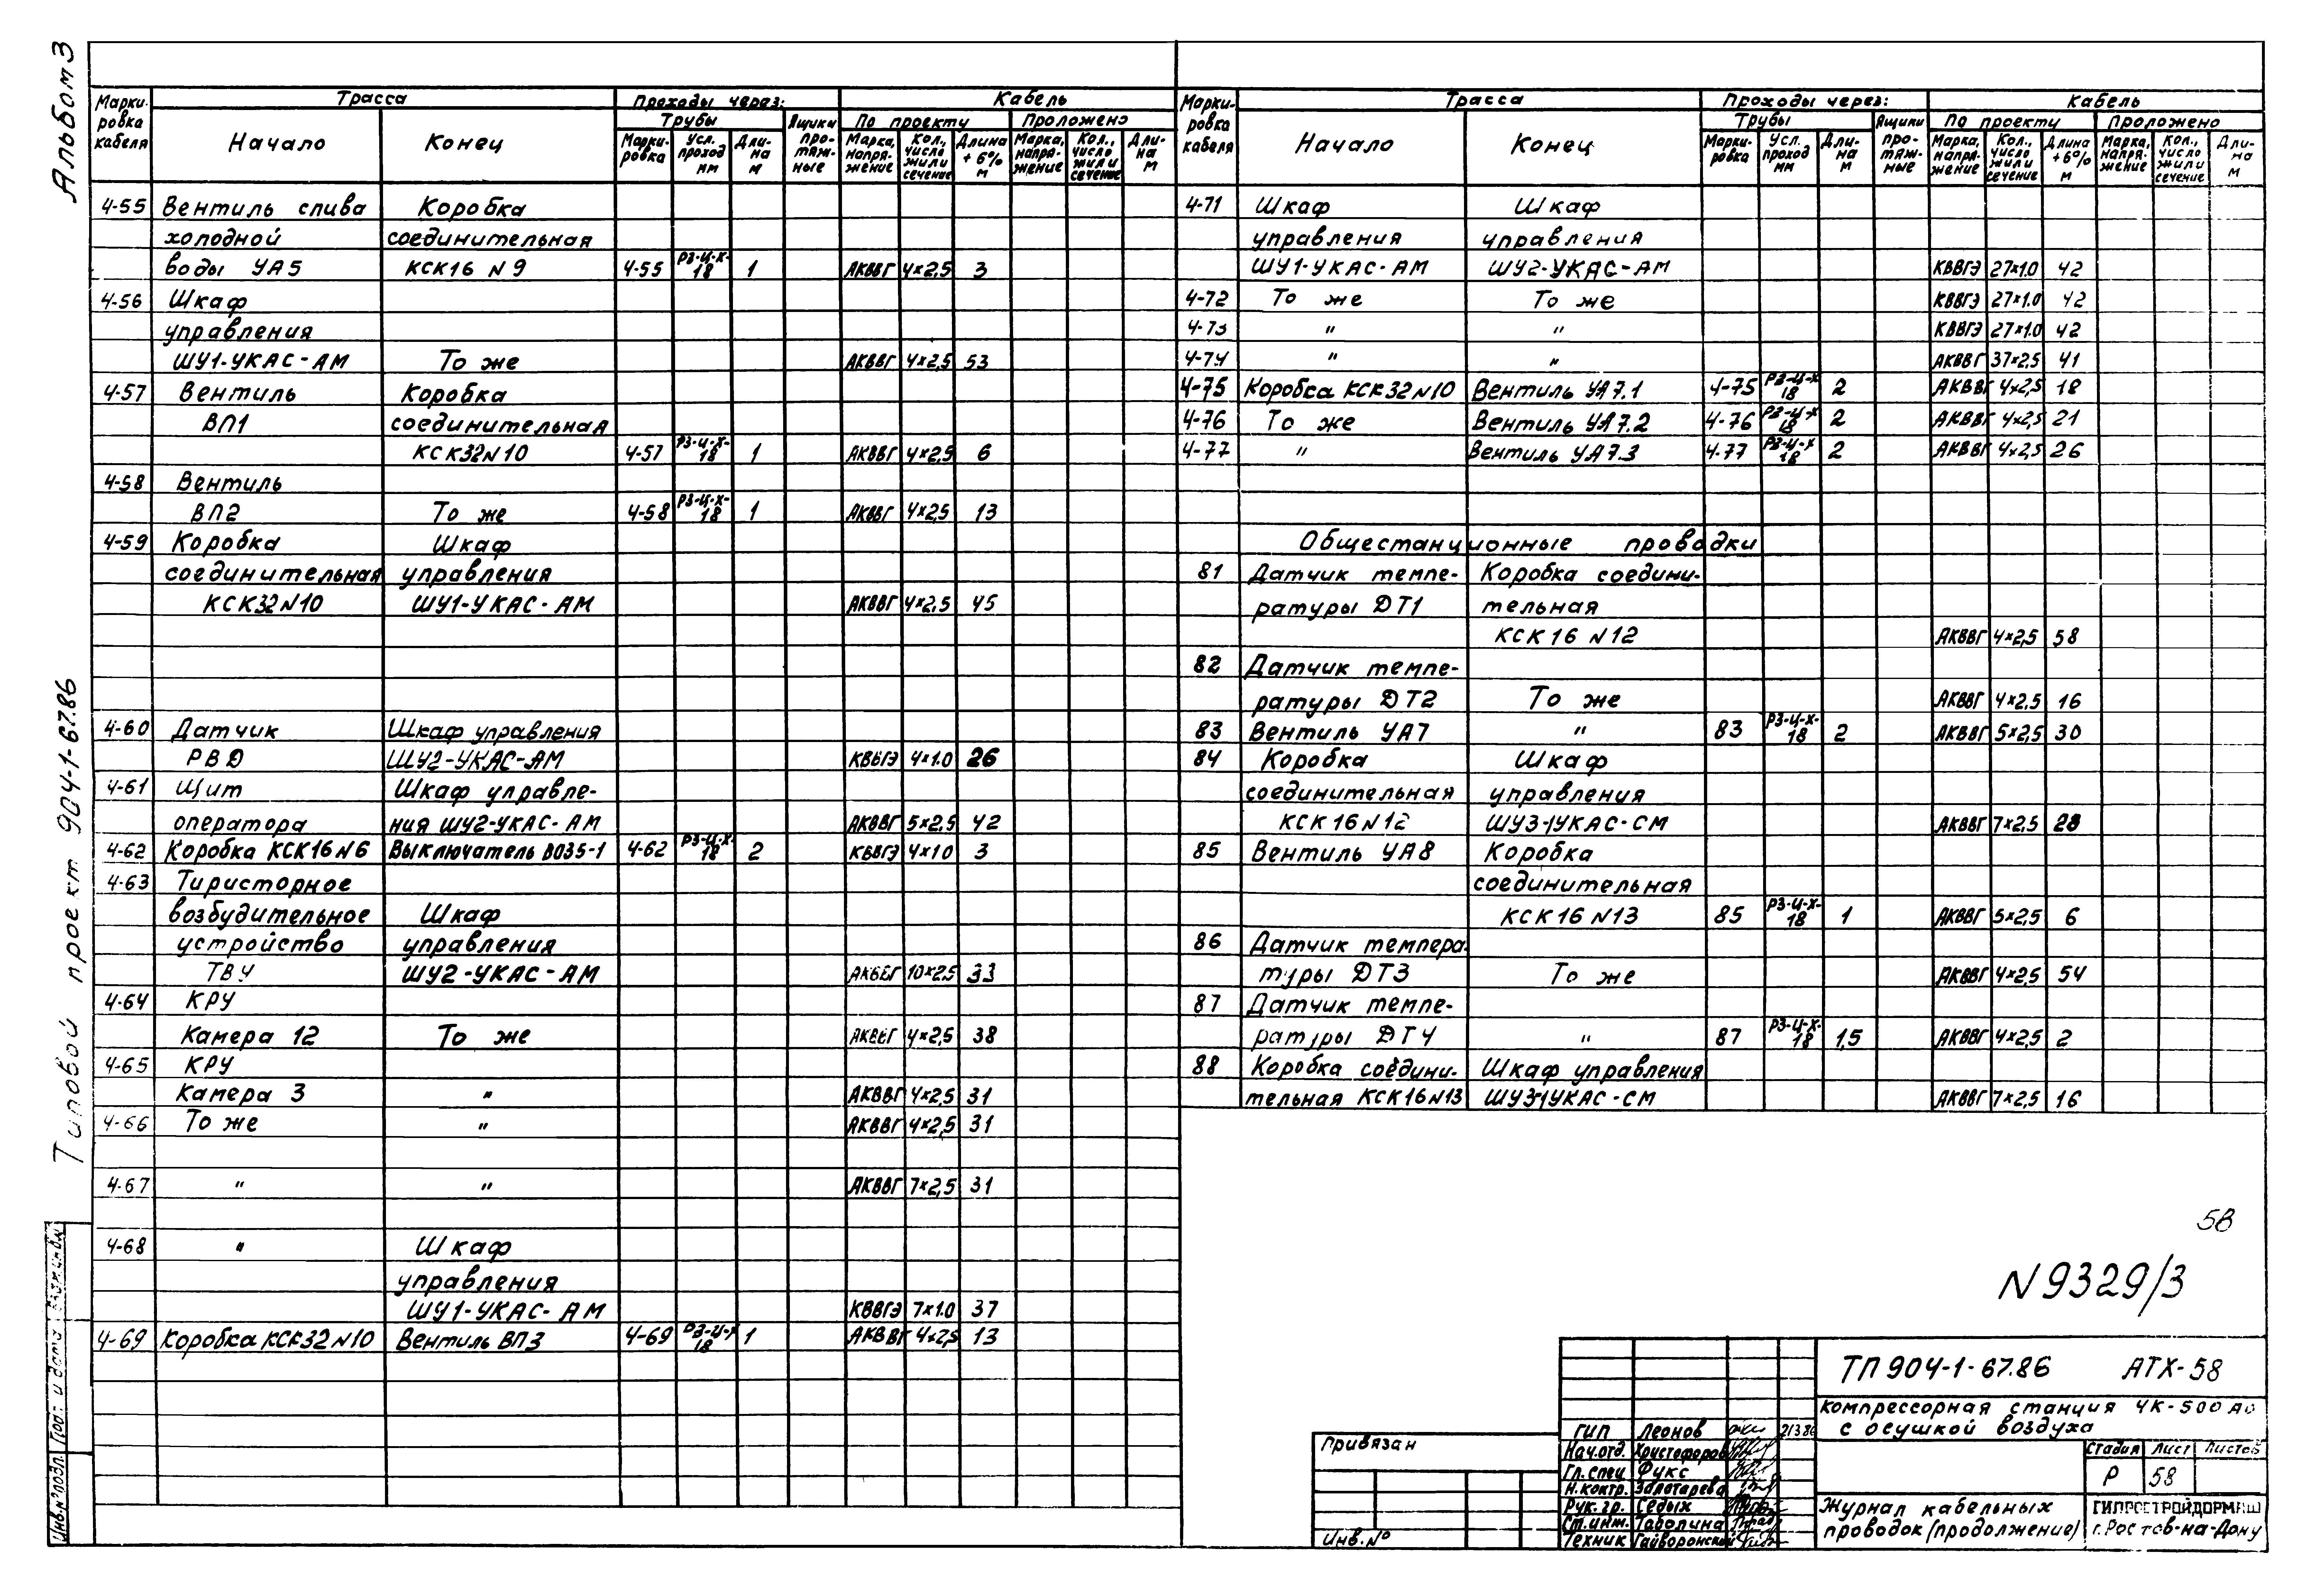 Альбом 3
Типовой проект 904-1-67.86
Марки-ровка кабеля | Трасса | Проходы через: | Кабель
Начало | Конец | Трубы | Ящики протяжные | По проекту | Проложено
Марки-ровка | Усл. проход мм | Дли-на м | Марка, напря-жение | Кол., число жил и сечение | Длина +6% м | Марка, напря-жение | Кол., число жил и сечение | Дли-на м
4-55 Вентиль слива Коробка
холодной соединительная
воды УА5 КСК16 N9 4-55 РЗ-Ц-Х-18 1 АКВВГ 4×2,5 3
4-56 Шкаф
управления
ШУ1-УКАС-АМ То же АКВВГ 4×2,5 53
4-57 Вентиль Коробка
ВП1 соединительная
КСК32N10 4-57 РЗ-Ц-Х-18 1 АКВВГ 4×2,5 6
4-58 Вентиль
ВП2 То же 4-58 РЗ-Ц-Х-18 1 АКВВГ 4×2,5 13
4-59 Коробка Шкаф
соединительная управления
КСК32N10 ШУ1-УКАС-АМ АКВВГ 4×2,5 45
4-60 Датчик Шкаф управления
РВД ШУ2-УКАС-АМ КВВГЭ 4×1.0 26
4-61 Щит Шкаф управле-
оператора ния ШУ2-УКАС-АМ АКВВГ 5×2,5 42
4-62 Коробка КСК16N6 Выключатель ВО35-1 4-62 РЗ-Ц-Х-18 2 КВВГЭ 4×1.0 3
4-63 Тиристорное
возбудительное Шкаф
устройство управления
ТВУ ШУ2-УКАС-АМ АКВВГ 10×2,5 33
4-64 КРУ
Камера 12 То же АКВВГ 4×2,5 38
4-65 КРУ
Камера 3 " АКВВГ 4×2,5 31
4-66 То же " АКВВГ 4×2,5 31
4-67 " " АКВВГ 7×2,5 31
4-68 " Шкаф
управления
ШУ1-УКАС-АМ КВВГЭ 7×1.0 37
4-69 Коробка КСК32N10 Вентиль ВП3 4-69 РЗ-Ц-Х 18 1 АКВВГ 4×2,5 13
Марки-ровка кабеля | Трасса | Проходы через: | Кабель
Начало | Конец | Трубы | Ящики протяжные | По проекту | Проложено
Марки-ровка | Усл. проход мм | Дли-на м | Марка, напря-жение | Кол., число жил и сечение | Длина +6% м | Марка, напря-жение | Кол., число жил и сечение | Дли-на м
4-71 Шкаф Шкаф
управления управления
ШУ1-УКАС-АМ ШУ2-УКАС-АМ КВВГЭ 27×1.0 42
4-72 То же То же КВВГЭ 27×1.0 42
4-73 " " КВВГЭ 27×1.0 42
4-74 " " АКВВГ 37×2,5 41
4-75 Коробка КСК32N10 Вентиль УА7.1 4-75 РЗ-Ц-Х 18 2 АКВВГ 4×2,5 18
4-76 То же Вентиль УА7.2 4-76 РЗ-Ц-Х 18 2 АКВВГ 4×2,5 21
4-77 " Вентиль УА7.3 4-77 РЗ-Ц-Х 18 2 АКВВГ 4×2,5 26
Общестанционные проводки
81 Датчик темпе- Коробка соедини-
ратуры ДТ1 тельная
КСК16 N12 АКВВГ 4×2,5 58
82 Датчик темпе-
ратуры ДТ2 То же АКВВГ 4×2,5 16
83 Вентиль УА7 " 83 РЗ-Ц-Х-18 2 АКВВГ 5×2,5 30
84 Коробка Шкаф
соединительная управления
КСК16N12 ШУ3-1УКАС-СМ АКВВГ 7×2,5 28
85 Вентиль УА8 Коробка
соединительная
КСК16N13 85 РЗ-Ц-Х-18 1 АКВВГ 5×2,5 6
86 Датчик темпера-
туры ДТ3 То же АКВВГ 4×2,5 54
87 Датчик темпе-
ратуры ДТ4 " 87 РЗ-Ц-Х-18 1,5 АКВВГ 4×2,5 2
88 Коробка соедини- Шкаф управления
тельная КСК16N13 ШУ3-1УКАС-СМ АКВВГ 7×2,5 16
58
N9329/3
ТП 904-1-67.86 АТХ-58
Компрессорная станция 4К-500 АО
с осушкой воздуха
Стадия Лист Листов
Р 58
Журнал кабельных
проводок (продолжение)
ГИПРОСТРОЙДОРМАШ
г. Ростов-на-Дону
ГИП Леонов 21386
Нач.отд. Христофоров
Гл.спец Фукс
Н.контр. Золотарева
Рук.гр. Седых
Ст.инж. Таболина
Техник Гайворонский
Привязан
Инв. №
Инв.№ подл. Подп. и дата Взам.инв.№